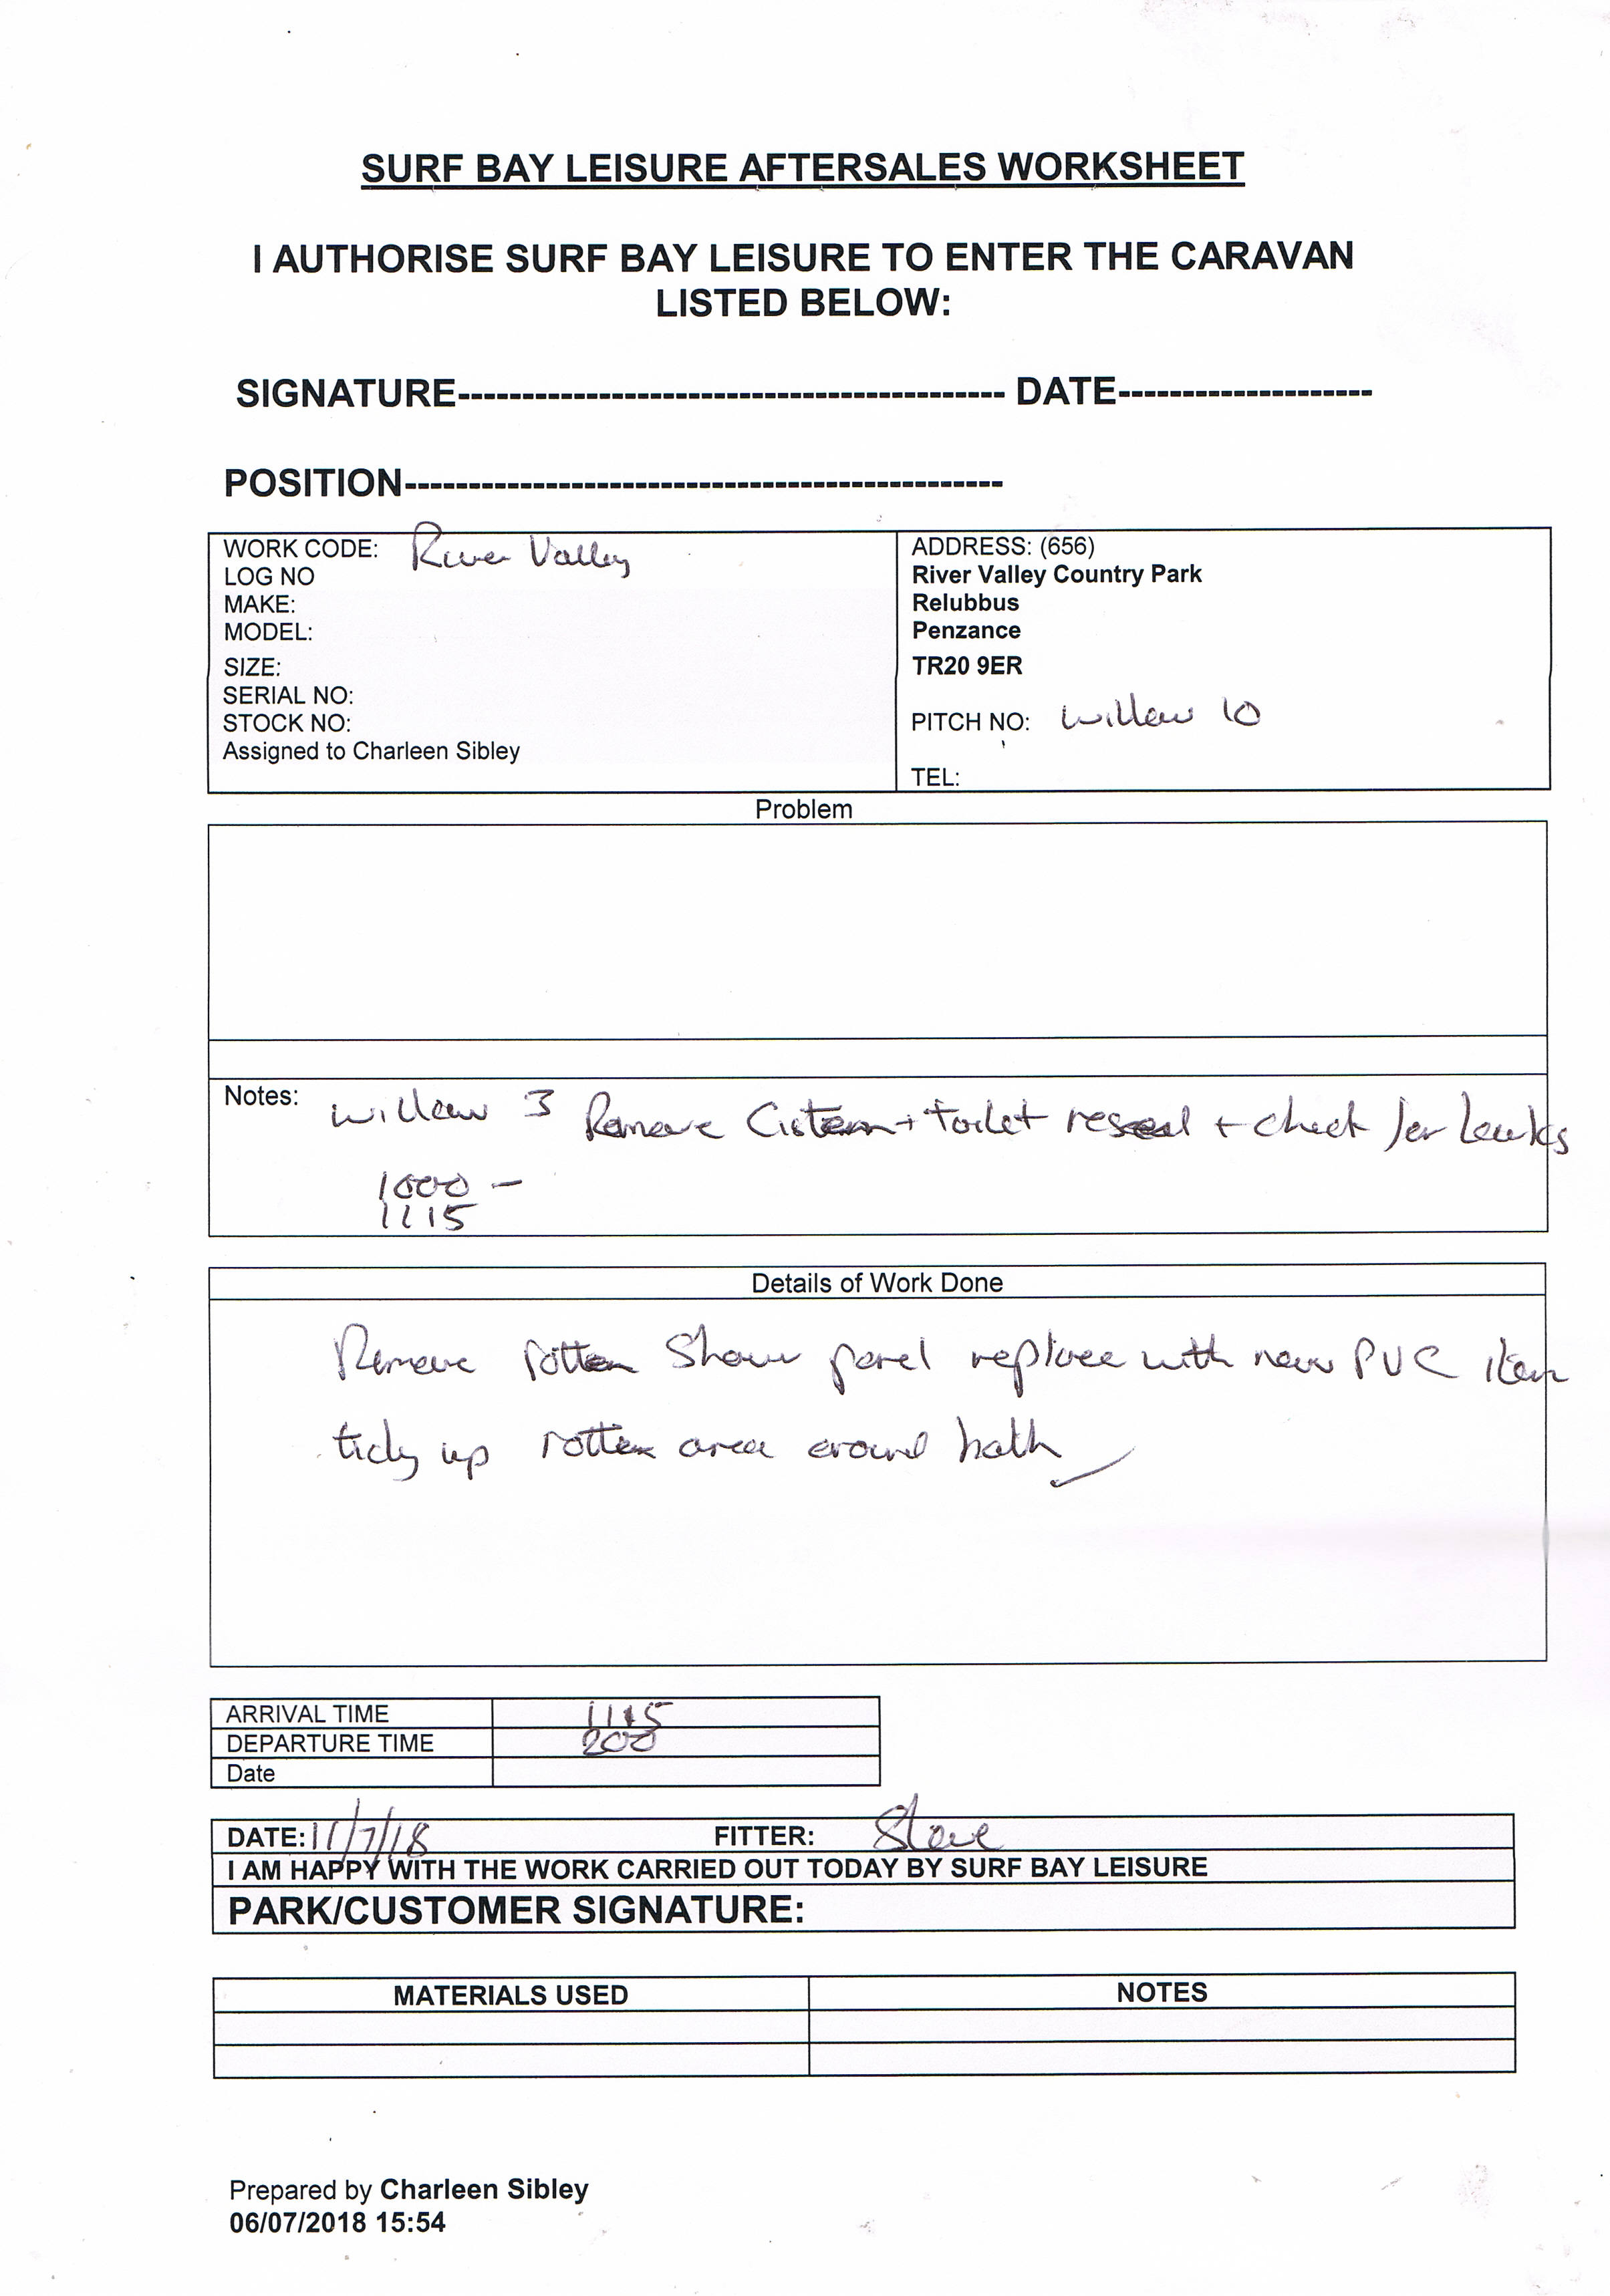 SURF BAY LEISURE AFTERSALES WORKSHEET
I AUTHORISE SURF BAY LEISURE TO ENTER THE CARAVAN
LISTED BELOW:
SIGNATURE------------------------------------------- DATE--------------------
POSITION-----------------------------------------------
WORK CODE: River Valley
LOG NO
MAKE:
MODEL:
SIZE:
SERIAL NO:
STOCK NO:
Assigned to Charleen Sibley
ADDRESS: (656)
River Valley Country Park
Relubbus
Penzance
TR20 9ER
PITCH NO: Willow 10
TEL:
Problem
Notes: Willow 3 Remove Cistern + toilet reseal + check for Leaks
1000 -
1115
Details of Work Done
Remove rotten Shower panel replace with new PVC item
tidy up rotten area around bath
ARRIVAL TIME 1115
DEPARTURE TIME 200
Date
DATE: 11/7/18 FITTER: Steve
I AM HAPPY WITH THE WORK CARRIED OUT TODAY BY SURF BAY LEISURE
PARK/CUSTOMER SIGNATURE:
MATERIALS USED NOTES
Prepared by Charleen Sibley
06/07/2018 15:54